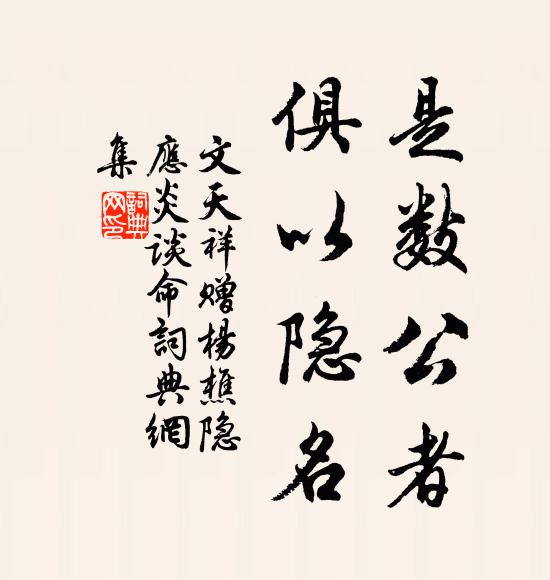 是数公者
俱以隐名
文天祥赠杨樵隐
應炎谈命詞典網
集
詞典
网印